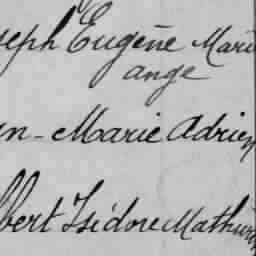 seph Eugène Marie
ange
en-Marie Adrien
lbert Isidore Mathurin